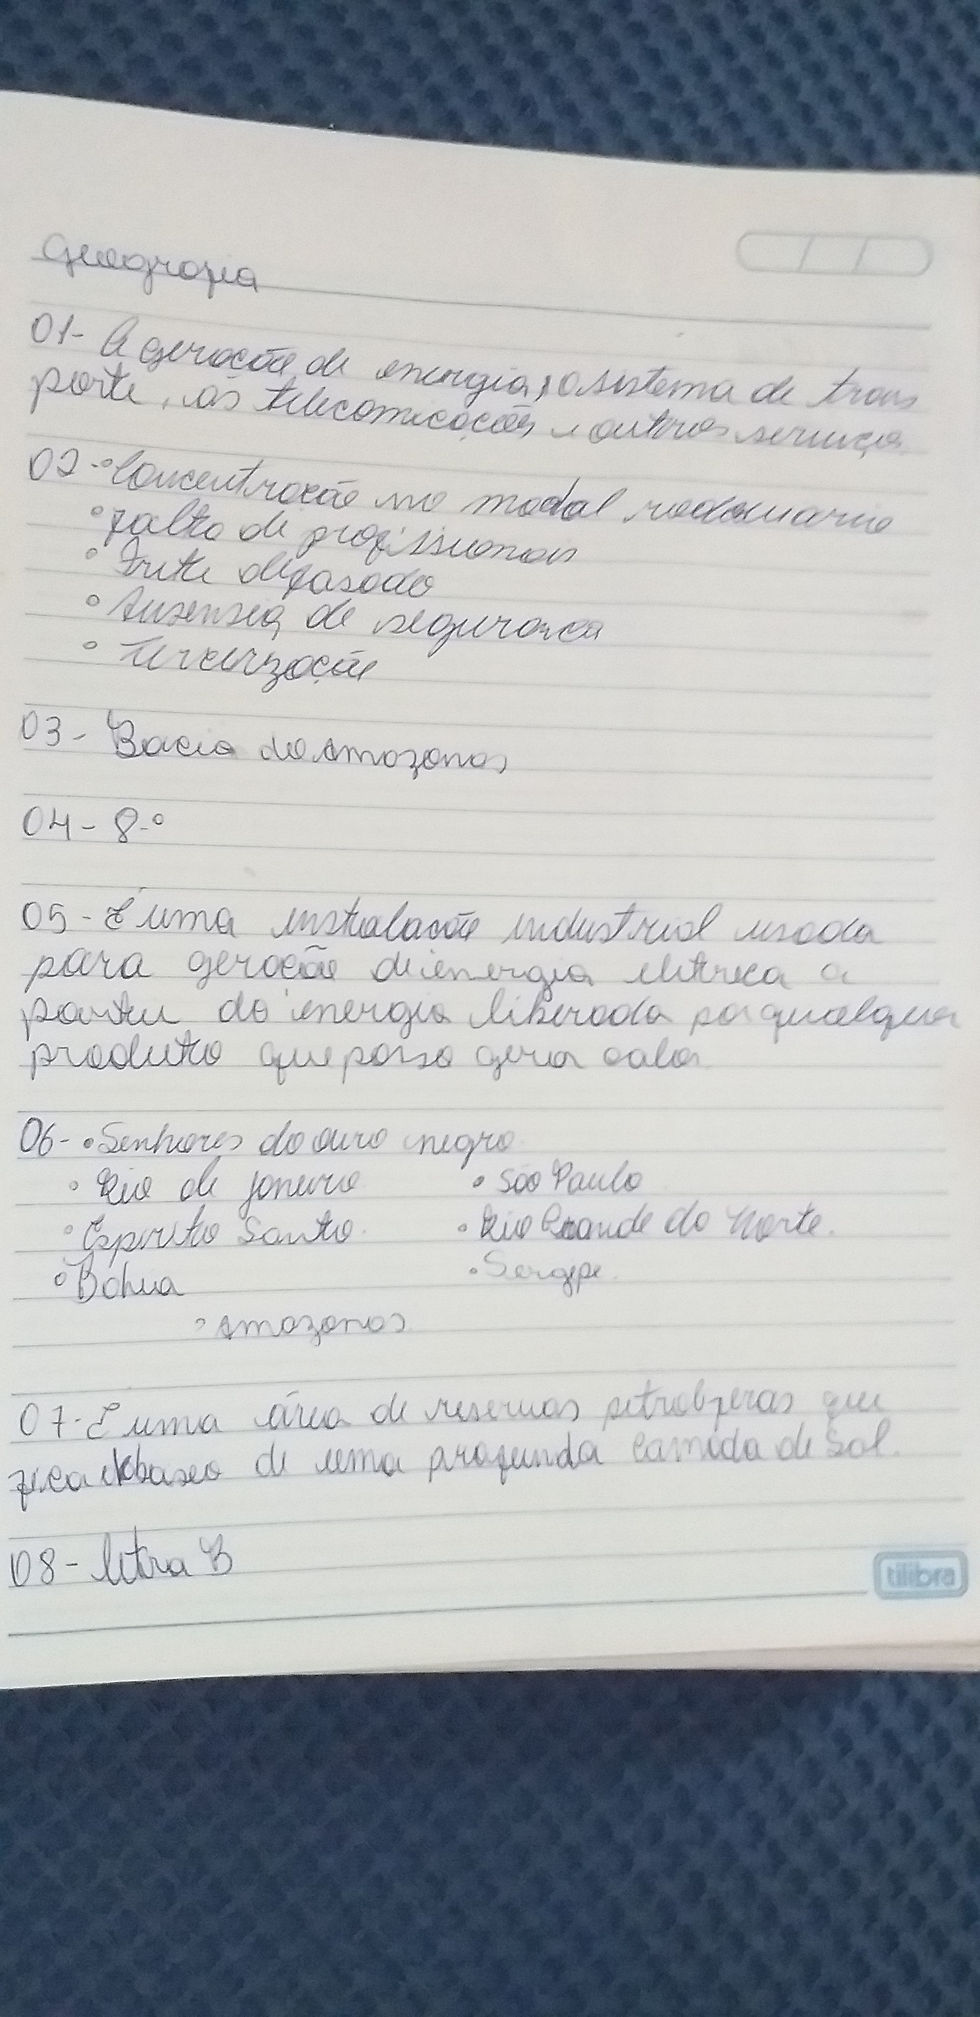 Geografia
01- A geração de energia, o sistema de trans
porte, as telecomicações e outros serviços.
02-° Concentração no modal rodoviario
° falta de profissionais
° Frete defasado
° Ausensia de segurança
° Tercerização
03- Bacia do Amazonas
04- 8.°
05- É uma instalação industrial usada
para geração de energia elitrica a
partir da energia liberada por qualquer
produto que possa gerar calor
06- • Senhores do ouro negro
• Rio de janeiro • São Paulo
• Espirito Santo. • Rio Grande do Norte.
° Bahia • Sergipe.
° Amazonas
07- É uma área de reservas petroliferas que
fica debaxo de uma profunda camada de Sal.
08- letra B
tilibra